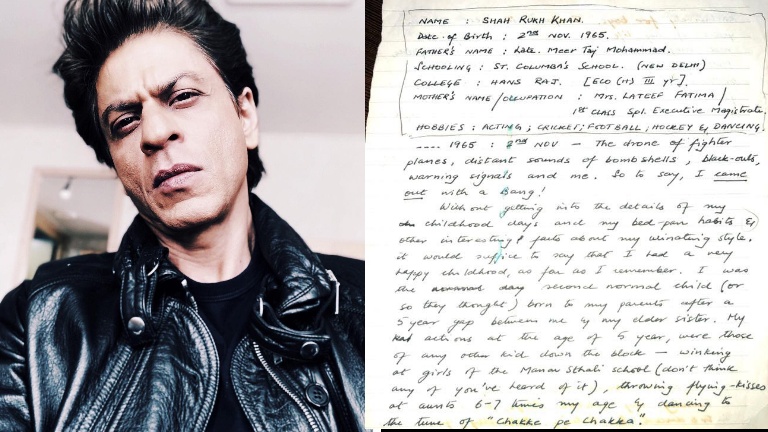 NAME : SHAH RUKH KHAN.
Date of Birth : 2nd NOV. 1965.
FATHER'S NAME : Late. Meer Taj Mohammad.
SCHOOLING : ST. COLUMBA'S SCHOOL. (NEW DELHI)
COLLEGE : HANS RAJ. [ECO (H) III yr].
MOTHER'S NAME/OCCUPATION : Mrs. LATEEF FATIMA/
1st CLASS Spl. Executive Magistrate.
HOBBIES : ACTING; CRICKET; FOOTBALL; HOCKEY & DANCING
---- 1965 : 2nd NOV — The drone of fighter
planes, distant sounds of bombshells, black-outs,
warning signals and me. So to say, I came
out with a Bang!
Without getting into the details of my
childhood days and my bed-pan habits &
other interesting facts about my urinating style,
it would suffice to say that I had a very
happy childhood, as far as I remember. I was
the second normal child (or
so they thought) born to my parents after a
5 year gap between me & my elder sister. My
actions at the age of 5 year, were those
of any other kid down the block — winking
at girls of the Manav Sthali school (don't think
any of you've heard of it), throwing flying-kisses
at aunts 6-7 times my age & dancing to
the tune of "Chakke pe Chakka".